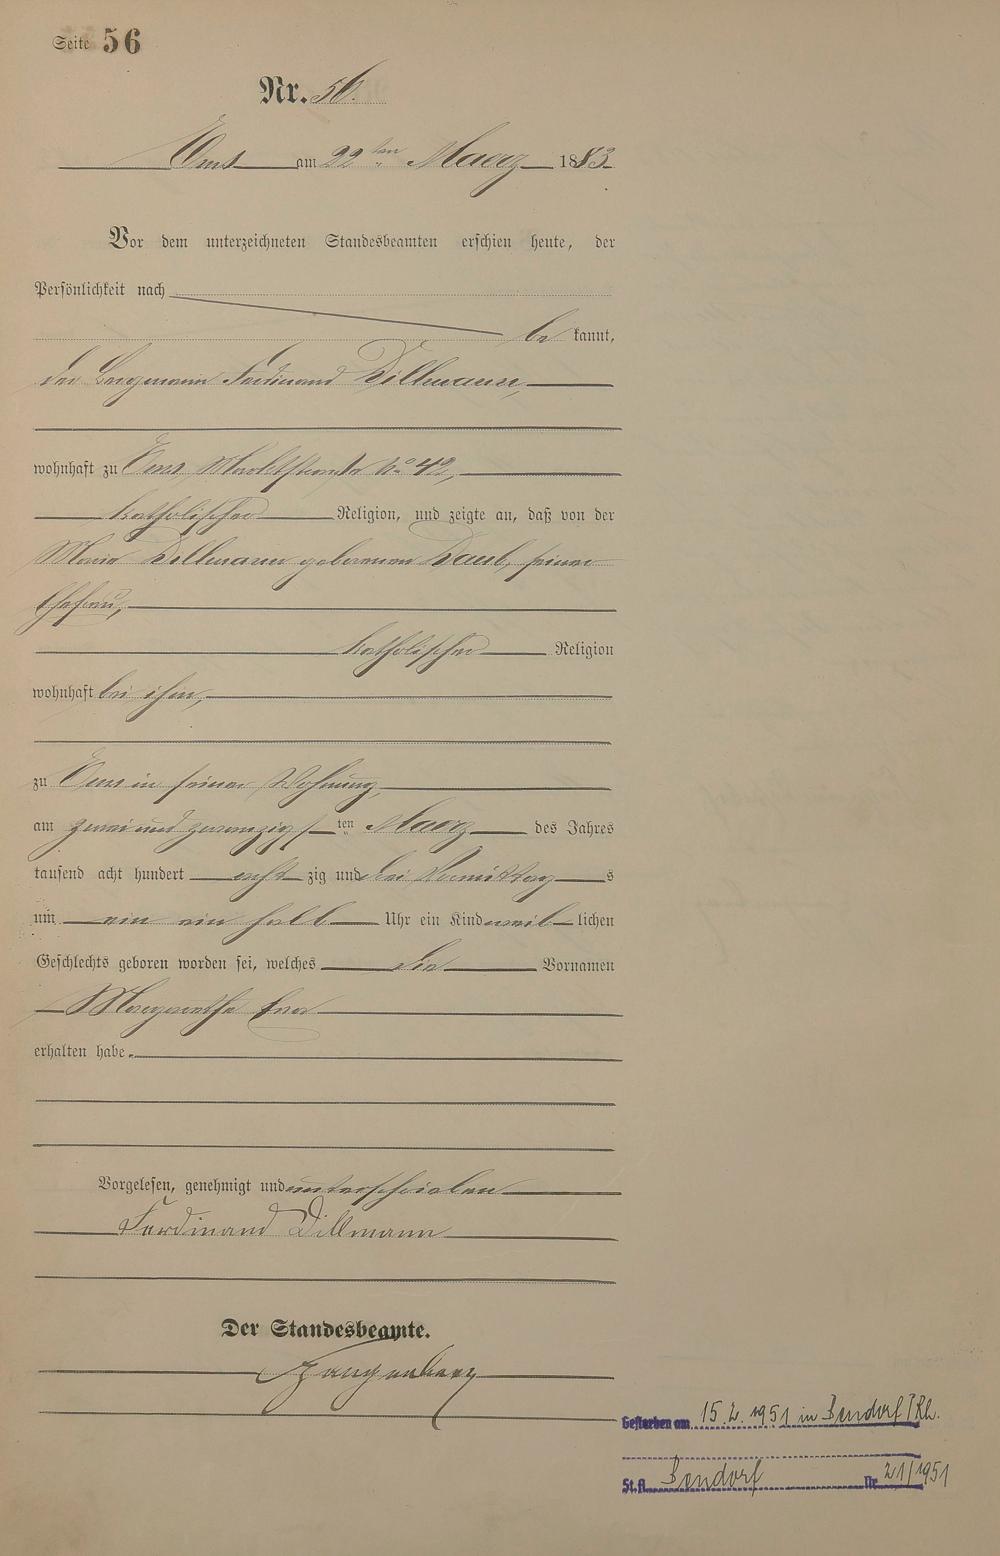 Seite 56
Nr. 56.
Ems am 22ten Maerz 1883
Vor dem unterzeichneten Standesbeamten erschien heute, der
Persönlichkeit nach
be kannt,
der Bergmann Ferdinand Dillmann,
wohnhaft zu Ems, Marktstraße No 42,
katholischer Religion, und zeigte an, daß von der
Maria Dillmann geborenen Daub, seiner
Ehefrau,
katholischer Religion
wohnhaft bei ihm,
zu Ems in seiner Wohnung,
am zwei und zwanzigsten Maerz des Jahres
tausend acht hundert acht zig und drei Vormittags
um ein ein halb Uhr ein Kind weiblichen
Geschlechts geboren worden sei, welches die Vornamen
Margarethe Eva
erhalten habe.
Vorgelesen, genehmigt und unterschrieben
Ferdinand Dillmann
Der Standesbeamte.
Gestorben am 15.2.1951 in Bendorf/Rh.
St.A. Bendorf Nr. 21/1951